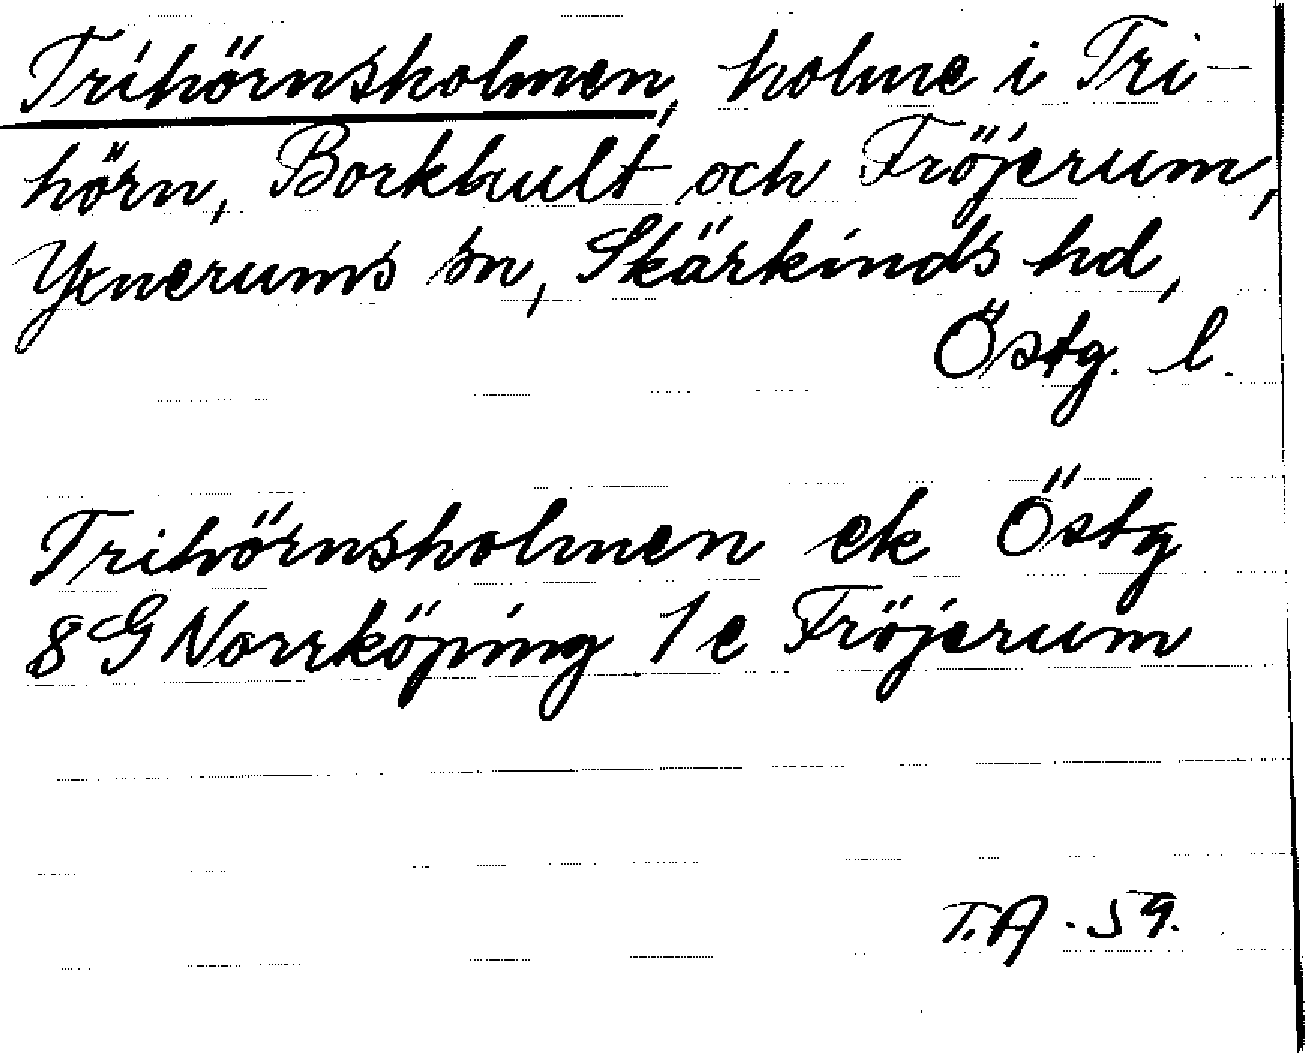 Trihörnsholmen, holme i Tri-
hörn, Borkhult och Fröjerum,
Yxnerums sn, Skärkinds hd,
Östg. l.
Trihörnsholmen ek Östg
8 G Norrköping 1 e Fröjerum
T.A -59.